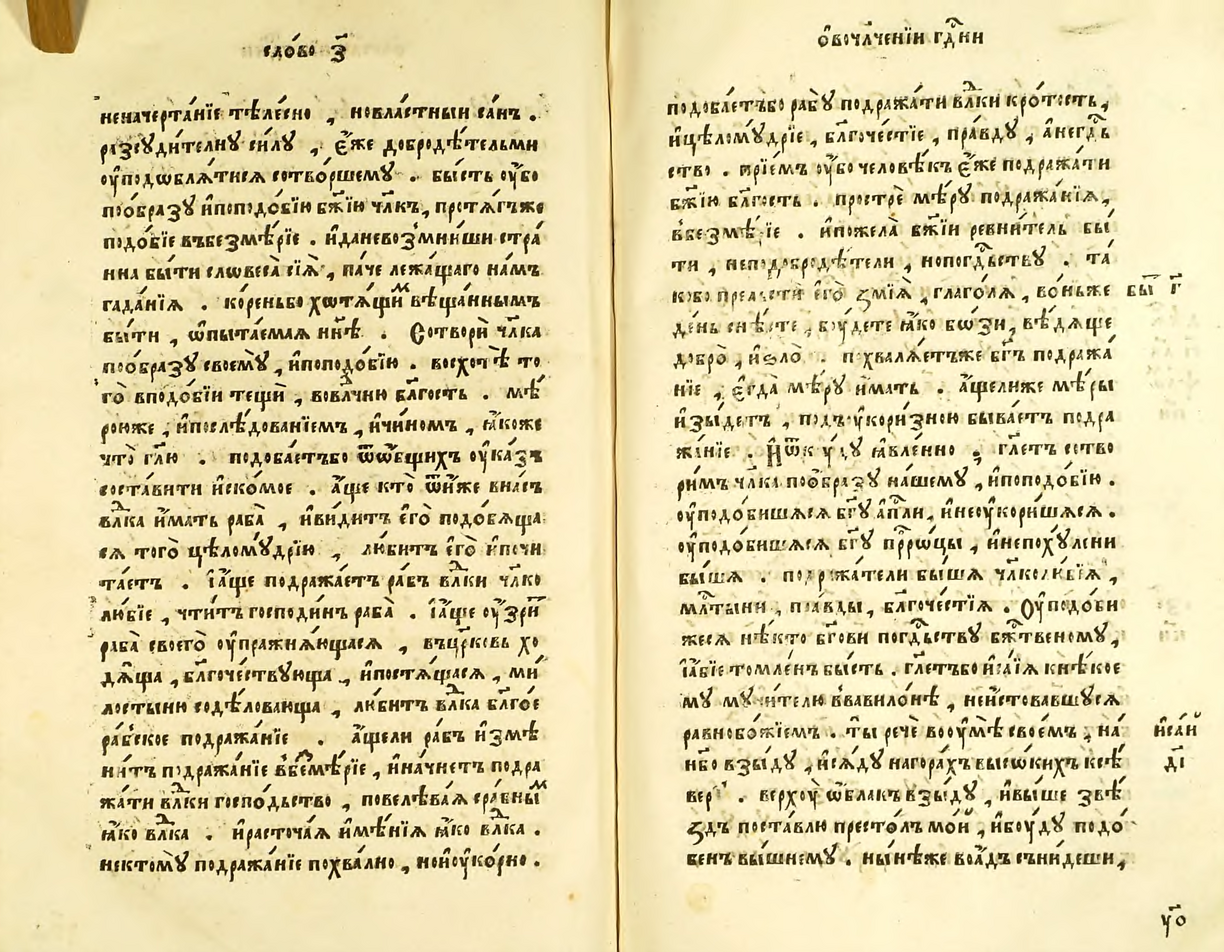 сло́во з҃
неначерта́нїе тѣле́сно , новла́стныи са́нъ .
разсуди́телнꙋ си́лꙋ , є҆́же добродѣ́тельми
оу҆подѡблѧ́тисѧ сотво́ршемꙋ . бы́сть оу҆́бо
поо́бразꙋ и҆поподо́бїю бж҃їю чл҃къ , протѧ́гъже
подо́бїе въбезмѣ́рїе . и҆даневоз̾мни́ши стра́
нна бы́ти словеса̀ сїѧ̀ , па́че лежа́щаго на́мъ
гада́нїѧ . ко́реньбо хотѧ́щим вѣща́ннымъ
бы́ти , ѡ҆пыта́емаѧ нн҃ѣ . Сотворѝ чл҃ка
поо́бразꙋ своемꙋ̀ , и҆поподо́бїю . восхотѣ̀ то
го̀ вподо́бїи тещѝ , вовл҃чню бл҃гость . мѣ́
роюже , и҆послѣ́дованїемъ , и҆чи́номъ , ꙗ҆́коже
что̀ гл҃ю . подоба́етъбо ѿѻ҆́бщихъ оу҆ка́зъ
соста́вити и҆ско́мое . а҆́ще кто̀ ѿни́же внасъ
вл҃ка и҆́мать раба̀ , и҆ви́дитъ є҆го̀ подо́бѧща
сѧ того̀ цѣломꙋ́дрїю , лю́битъ є҆го̀ и҆почи
та́етъ . і҆а҆́ще подража́етъ ра́бъ вл҃ки чл҃ко
лю́бїе , чти́тъ господи́нъ раба̀ . і҆а҆́ще оу҆́зри
раба̀ своего̀ оу҆пражнѧ́ющасѧ , въцр҃ковь хо
дѧ́ща , бл҃гоче́ствꙋюща , и҆постѧ́щасѧ , ми́
лостыню содѣ́ловающа , лю́битъ вл҃ка бл҃го́е
ра́бское подража́нїе . а҆́щели ра́бъ и҆змѣ
ни́тъ подража́нїе вбезмѣ́рїе , и҆начне́тъ подра
жа́ти вл҃ки госпо́дьство , повелѣва́ѧ сра́вным
ꙗ҆́ко вл҃ка . и҆расточа́ѧ и҆мѣ́нїѧ ꙗ҆́ко вл҃ка .
нектомꙋ̀ подража́нїе похва́лно , нои҆оу҆ко́рно .
ѻ҆вочл҃че́нїи гд҇ни
подобае́тъбо рабꙋ̀ подража́ти вл҃ки кро́тость ,
и҆цѣломꙋ́дрїе , бл҃гоче́стїе , пра́вдꙋ , а҆негд҇ь
ство . прїе́мъ оу҆́бо человѣ́къ є҆́же подража́ти
бж҃їю бл҃гость . прострѐ мѣ́рꙋ подража́нїѧ ,
вбезмѣ́рїе . и҆пожела̀ бж҃їи ревни́тель бы́
ти , неподобродѣ́тели , нопогд҇ьствꙋ . та́
ково прельстѝ є҆го̀ ѕмїѧ̀ , глаго́лѧ , во́ньже
де́нь снѣ́сте , бꙋ́дете ꙗ҆́ко бо́зи , вѣ́дѧще
добро̀ , и҆ѕло̀ . похвалѧ́етъже бг҃ъ подража́
нїе , є҆гда̀ мѣ́рꙋ и҆́мать . а҆́щелиже мѣ́ры
и҆зы́детъ , подъоу҆кори́зною быва́етъ подра
жа́нїе . И҆ѿкꙋ́дꙋ ꙗ҆вле́нно , гл҃етъ сотво
ри́мъ чл҃ка поо́бразꙋ на́шемꙋ , и҆поподо́бїю .
оу҆подо́бишѧсѧ бг҃ꙋ а҆пⷭ҇ли , и҆неоу҆кори́шѧсѧ .
оу҆подо́бишѧсѧ бг҃ꙋ прⷪ҇рѡцы , и҆непохꙋ́лени
бы́шѧ . подража́тели бы́шѧ чл҃колю́бїѧ ,
мл҇тыни , пра́вды , бл҃гоче́стїѧ . Оу҆подо́би
жесѧ нѣ́кто бг҃ови погд҇ьствꙋ бж҇твеномꙋ ,
і҆а҆́бїе томле́нъ бы́сть . гл҃етъбо и҆са́їѧ кнѣ́кое
мꙋ мꙋчи́телю ввавило́нѣ , неи́стовавшꙋсѧ
равнобо́жїемъ . ты̀ речѐ вооу҆мѣ̀ свое́мъ , на́
нб҃о взы́дꙋ , и҆сѧ́дꙋ нагора́хъ высо́кихъ ксѣ́
веръ . верхоу҆̀ ѡ҆́блакъ взы́дꙋ , и҆вы́ше звѣ́
ѕдъ поста́влю престо́лъ мо́й , и҆бꙋ́дꙋ подо́
бенъ вы́шнемꙋ . ны́нѣже воа҆́дъ съни́деши ,
бы҃ г҃
и҆са́и
д҃і
ч҃о